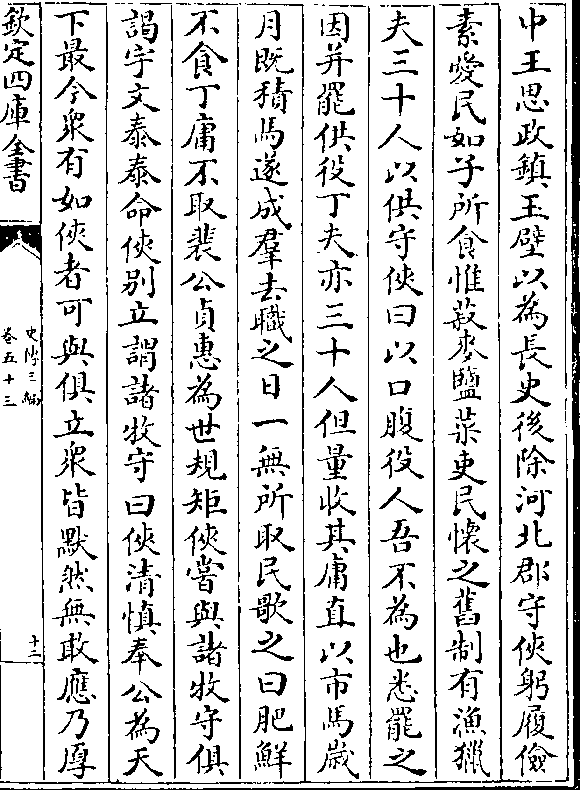 中王思政鎮玉壁以為長史後除河北郡守俠躬履儉
素愛民如子所食惟菽麥鹽菜吏民懷之舊制有漁獵
夫三十人以供守俠曰以口腹役人吾不為也悉罷之
因并罷供役丁夫亦三十人但量收其庸直以市馬歲
月既積馬遂成羣去職之日一無所取民歌之曰肥鮮
不食丁庸不取裴公貞惠為世規矩俠嘗與諸牧守俱
謁宇文泰泰命俠别立謂諸牧守曰俠清慎奉公為天
下最今衆有如俠者可與俱立衆皆默然無敢應乃厚
欽定四庫全書
史傳三編
卷五十三
十二